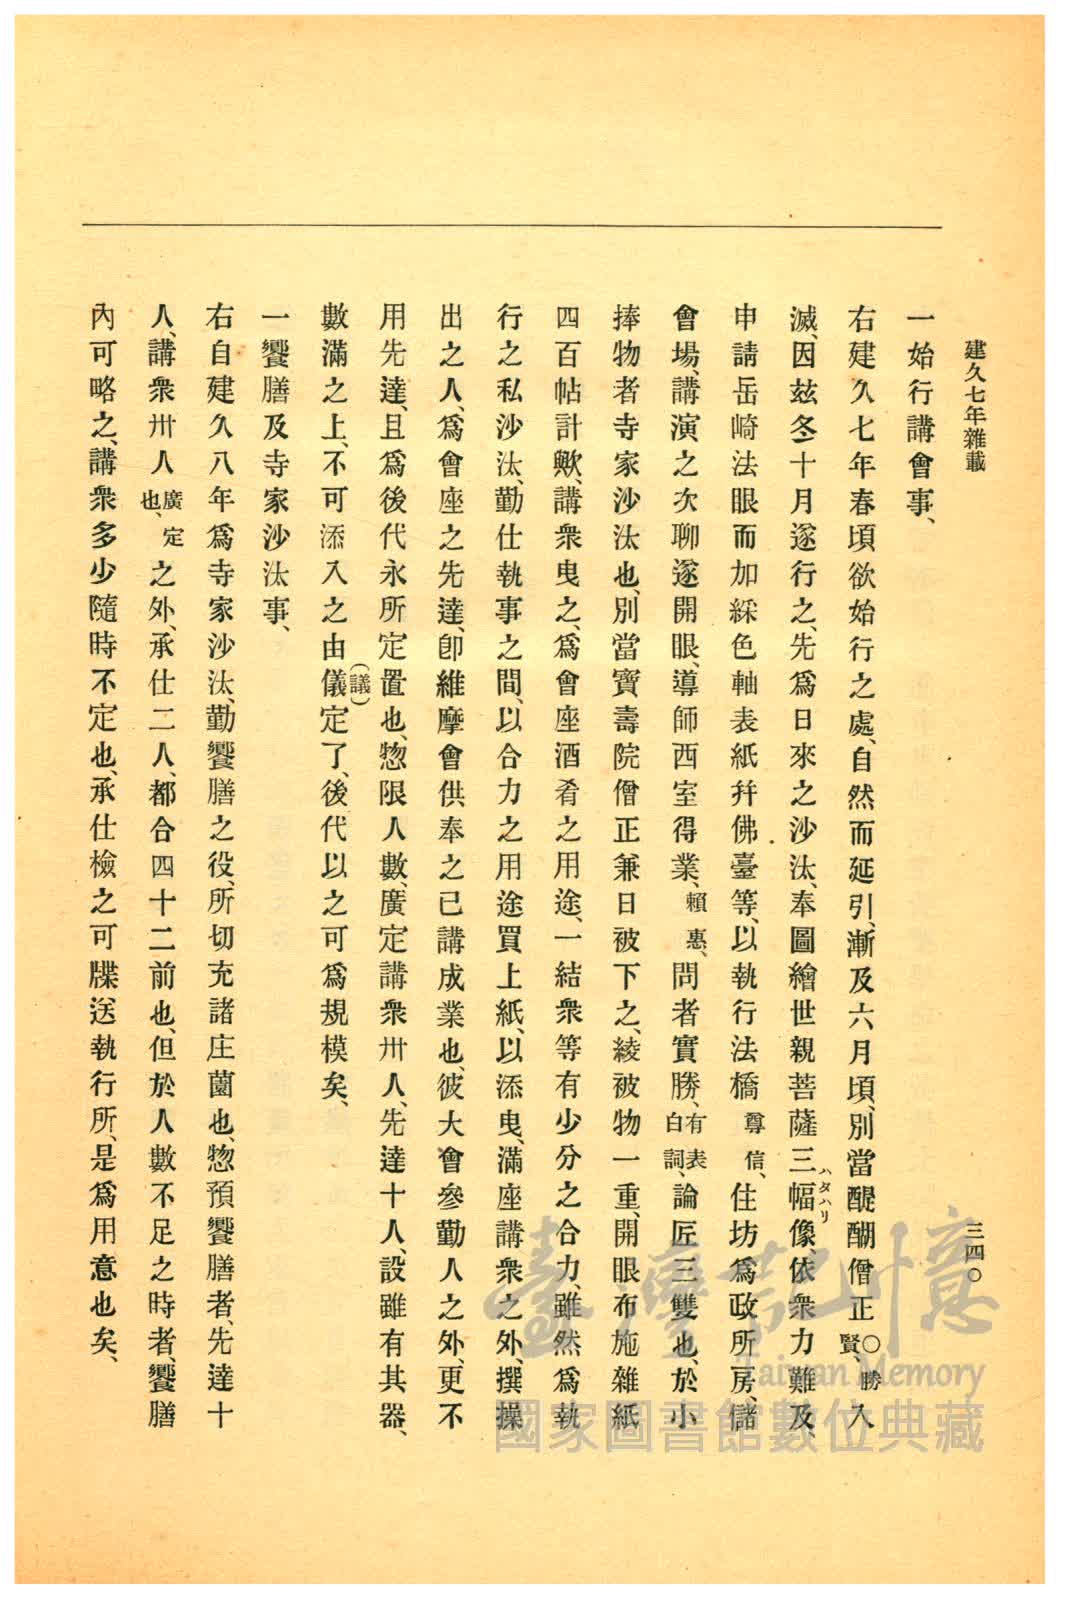 建久七年雜載
三四〇
一始行講會事、
右建久七年春頃欲始行之處、自然而延引、漸及六月頃、別當醍醐僧正〇勝賢、入
滅、因玆冬十月遂行之、先爲日來之沙汰、奉圖繪世親菩薩三幅像依衆力難及、
ハタハリ
申請岳崎法眼而加綵色軸表紙幷佛臺等、以執行法橋尊信、住坊爲政所房、儲
會場、講演之次聊遂開眼、導師西室得業、賴惠、問者實勝、有表白詞、論匠三雙也、於小
捧物者寺家沙汰也、別當寶壽院僧正兼日被下之、綾被物一重、開眼布施雜紙
四百帖計歟、講衆曳之、爲會座酒肴之用途、一結衆等有少分之合力、雖然爲執
行之私沙汰、勤仕執事之間、以合力之用途買上紙、以添曳、滿座講衆之外、撰操
出之人、爲會座之先達、卽維摩會供、奉之已講成業也、彼大會參勤人之外、更不
用先達、且爲後代永所定置也、惣限人數、廣定講衆卅人、先達十人、設雖有其器、
數滿之上、不可添入之由儀定了、後代以之可爲規模矣、
（議）
一饗膳及寺家沙汰事、
右自建久八年爲寺家沙汰、勤饗膳之役、所切充諸庄薗也、惣預饗膳者、先達十
人、講衆卅人廣定也、之外、承仕二人、都合四十二前也、但於人數不足之時者、饗膳
內可略之、講衆多少隨時不定也、承仕檢之可牒送執行所、是爲用意也矣、
臺灣記憶
Taiwan Memory
國家圖書館數位典藏